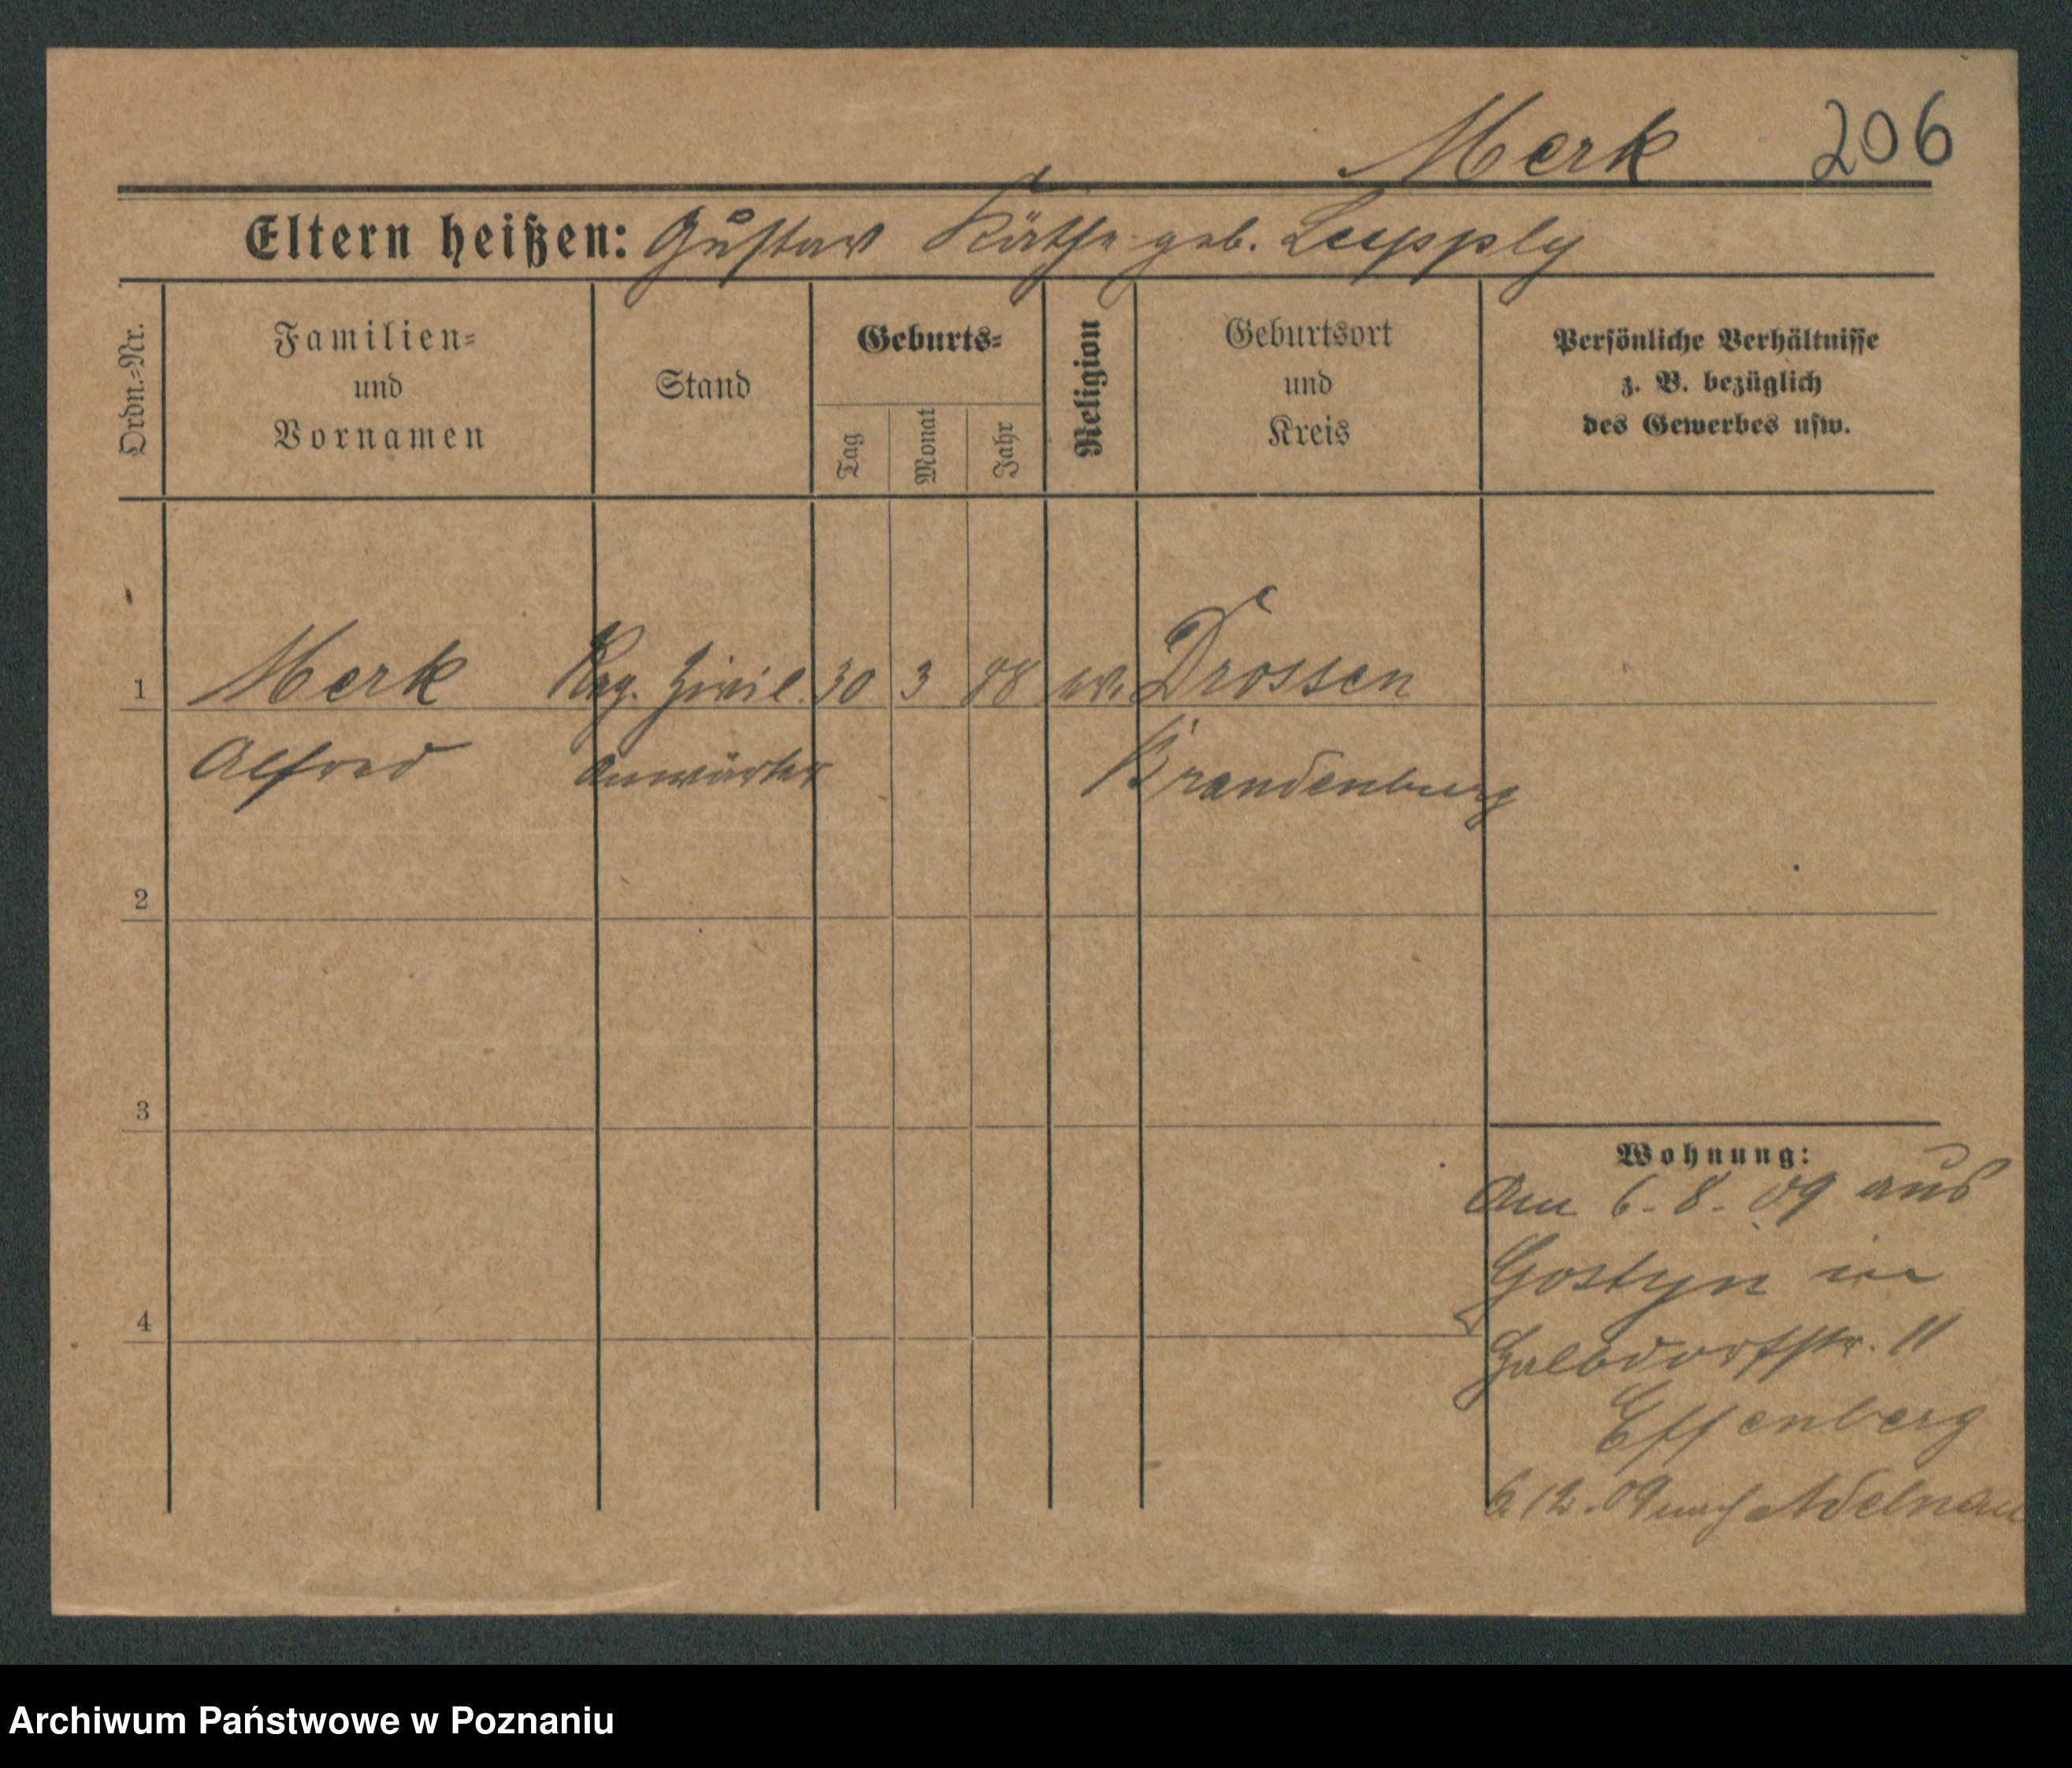 Merk 206
Eltern heißen: Gustav Käthe geb. Lepply
Ordn.=Nr.
Familien=
und
Vornamen
Stand
Geburts=
Tag
Monat
Jahr
Religion
Geburtsort
und
Kreis
Persönliche Verhältnisse
z. B. bezüglich
des Gewerbes usw.
1 Merk Reg. Zivil. 30 3 88 ev. Drossen
Alfred Anwärter Brandenburg
2
3
4
Wohnung:
Am 6.8.09 aus
Gostyn in
str. 11
Effenberg
12.09 nach Adelnau
Archiwum Państwowe w Poznaniu